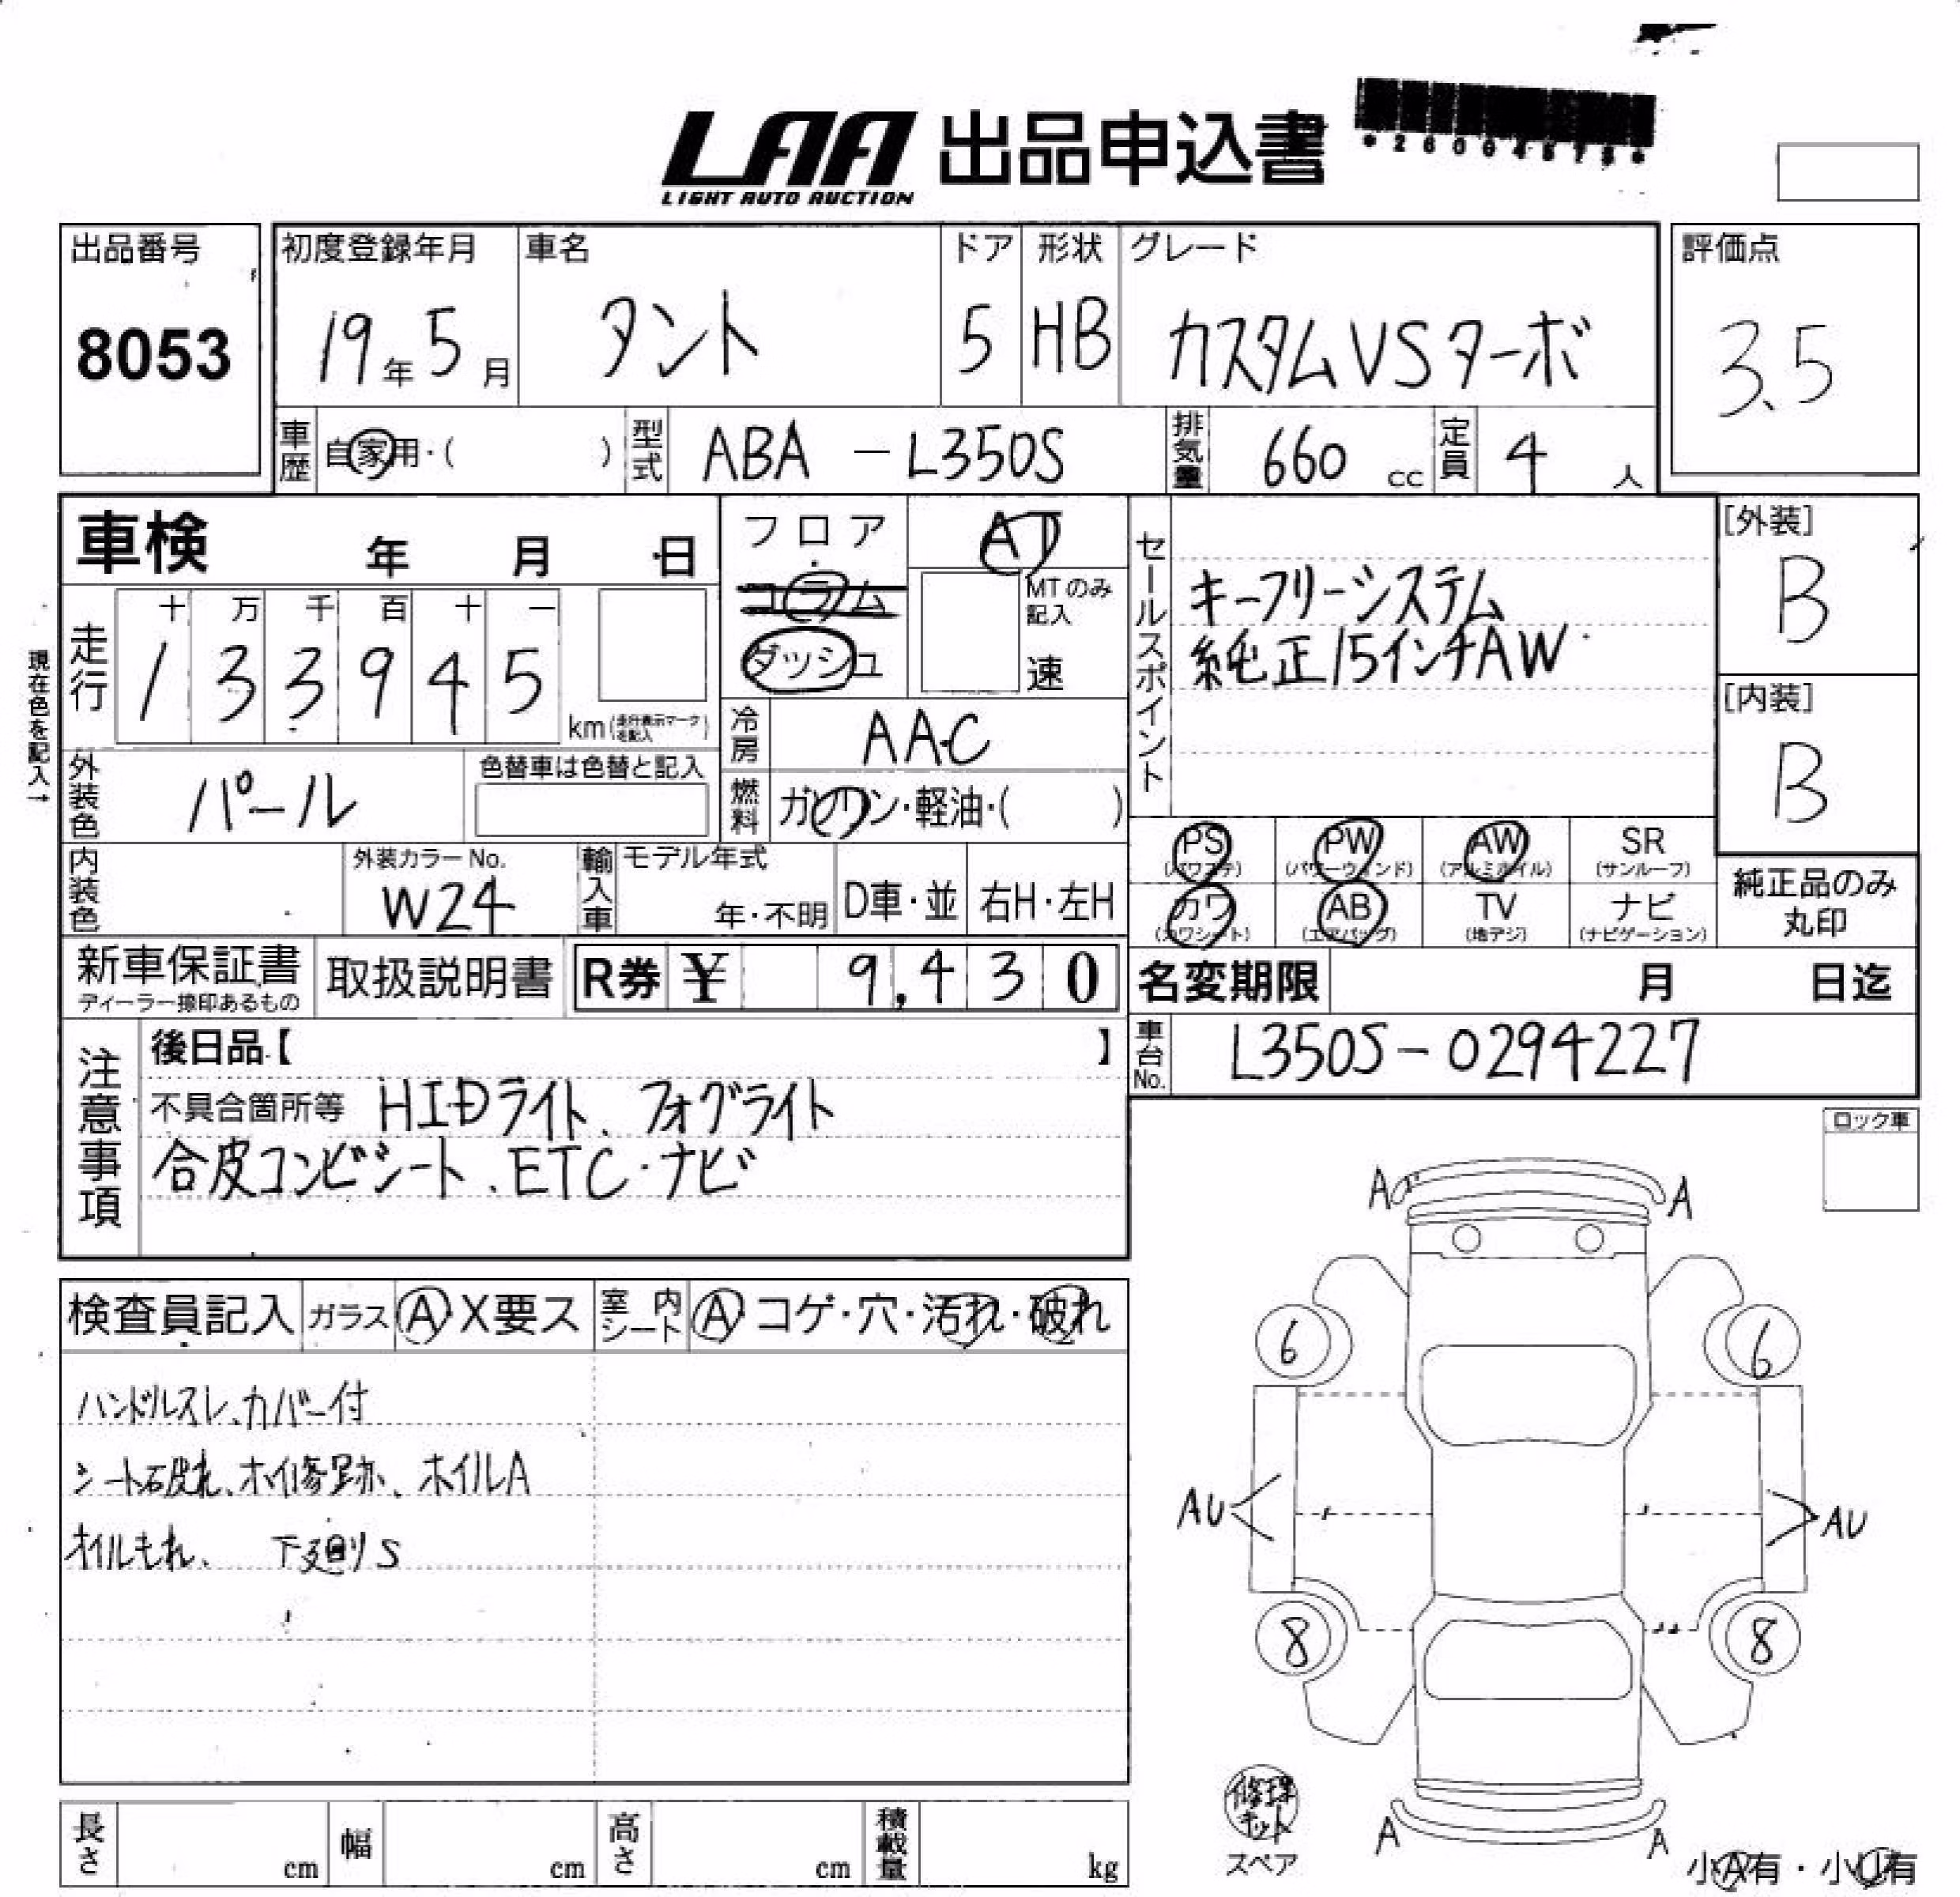 LAA 出品申込書
LIGHT AUTO AUCTION
出品番号
8053
初度登録年月
19年5月
車名
タント
ドア
5
形状
HB
グレード
カスタムVSターボ
評価点
3.5
車歴
自家用・( )
型式
ABA - L350S
排気量
660 cc
定員
4 人
車検 年 月 日
フロア
コラム
ダッシュ
AT
MTのみ記入
速
セールスポイント
キーフリーシステム
純正15インチAW
[外装]
B
[内装]
B
現在色を記入→
走行
十 万 千 百 十 一
1 3 3 9 4 5
km(走行表示マークを記入)
冷房
AAC
外装色
パール
色替車は色替と記入
燃料
ガソリン・軽油・( )
内装色
外装カラーNo.
W24
輸入車
モデル年式
年・不明
D車・並
右H・左H
PS
(パワステ)
PW
(パワーウィンド)
AW
(アルミホイル)
SR
(サンルーフ)
カワ
(カワシート)
AB
(エアバッグ)
TV
(地デジ)
ナビ
(ナビゲーション)
純正品のみ
丸印
新車保証書
ディーラー捺印あるもの
取扱説明書
R券 ¥ 9,430
名変期限 月 日迄
車台No.
L350S-0294227
注意事項
後日品【 】
不具合箇所等 HIDライト、フォグライト
合皮コンビシート、ETC・ナビ
ロック車
A A
6 6
AU AU
8 8
A A
検査員記入
ガラス
A・X要ス
室内シート
A・コゲ・穴・汚れ・破れ
ハンドルスレ、カバー付
シート破れ、ホイ修跡、ホイルA
オイルもれ、 下廻りS
修理キット
スペア
小A有・小U有
長さ cm
幅 cm
高さ cm
積載量 kg